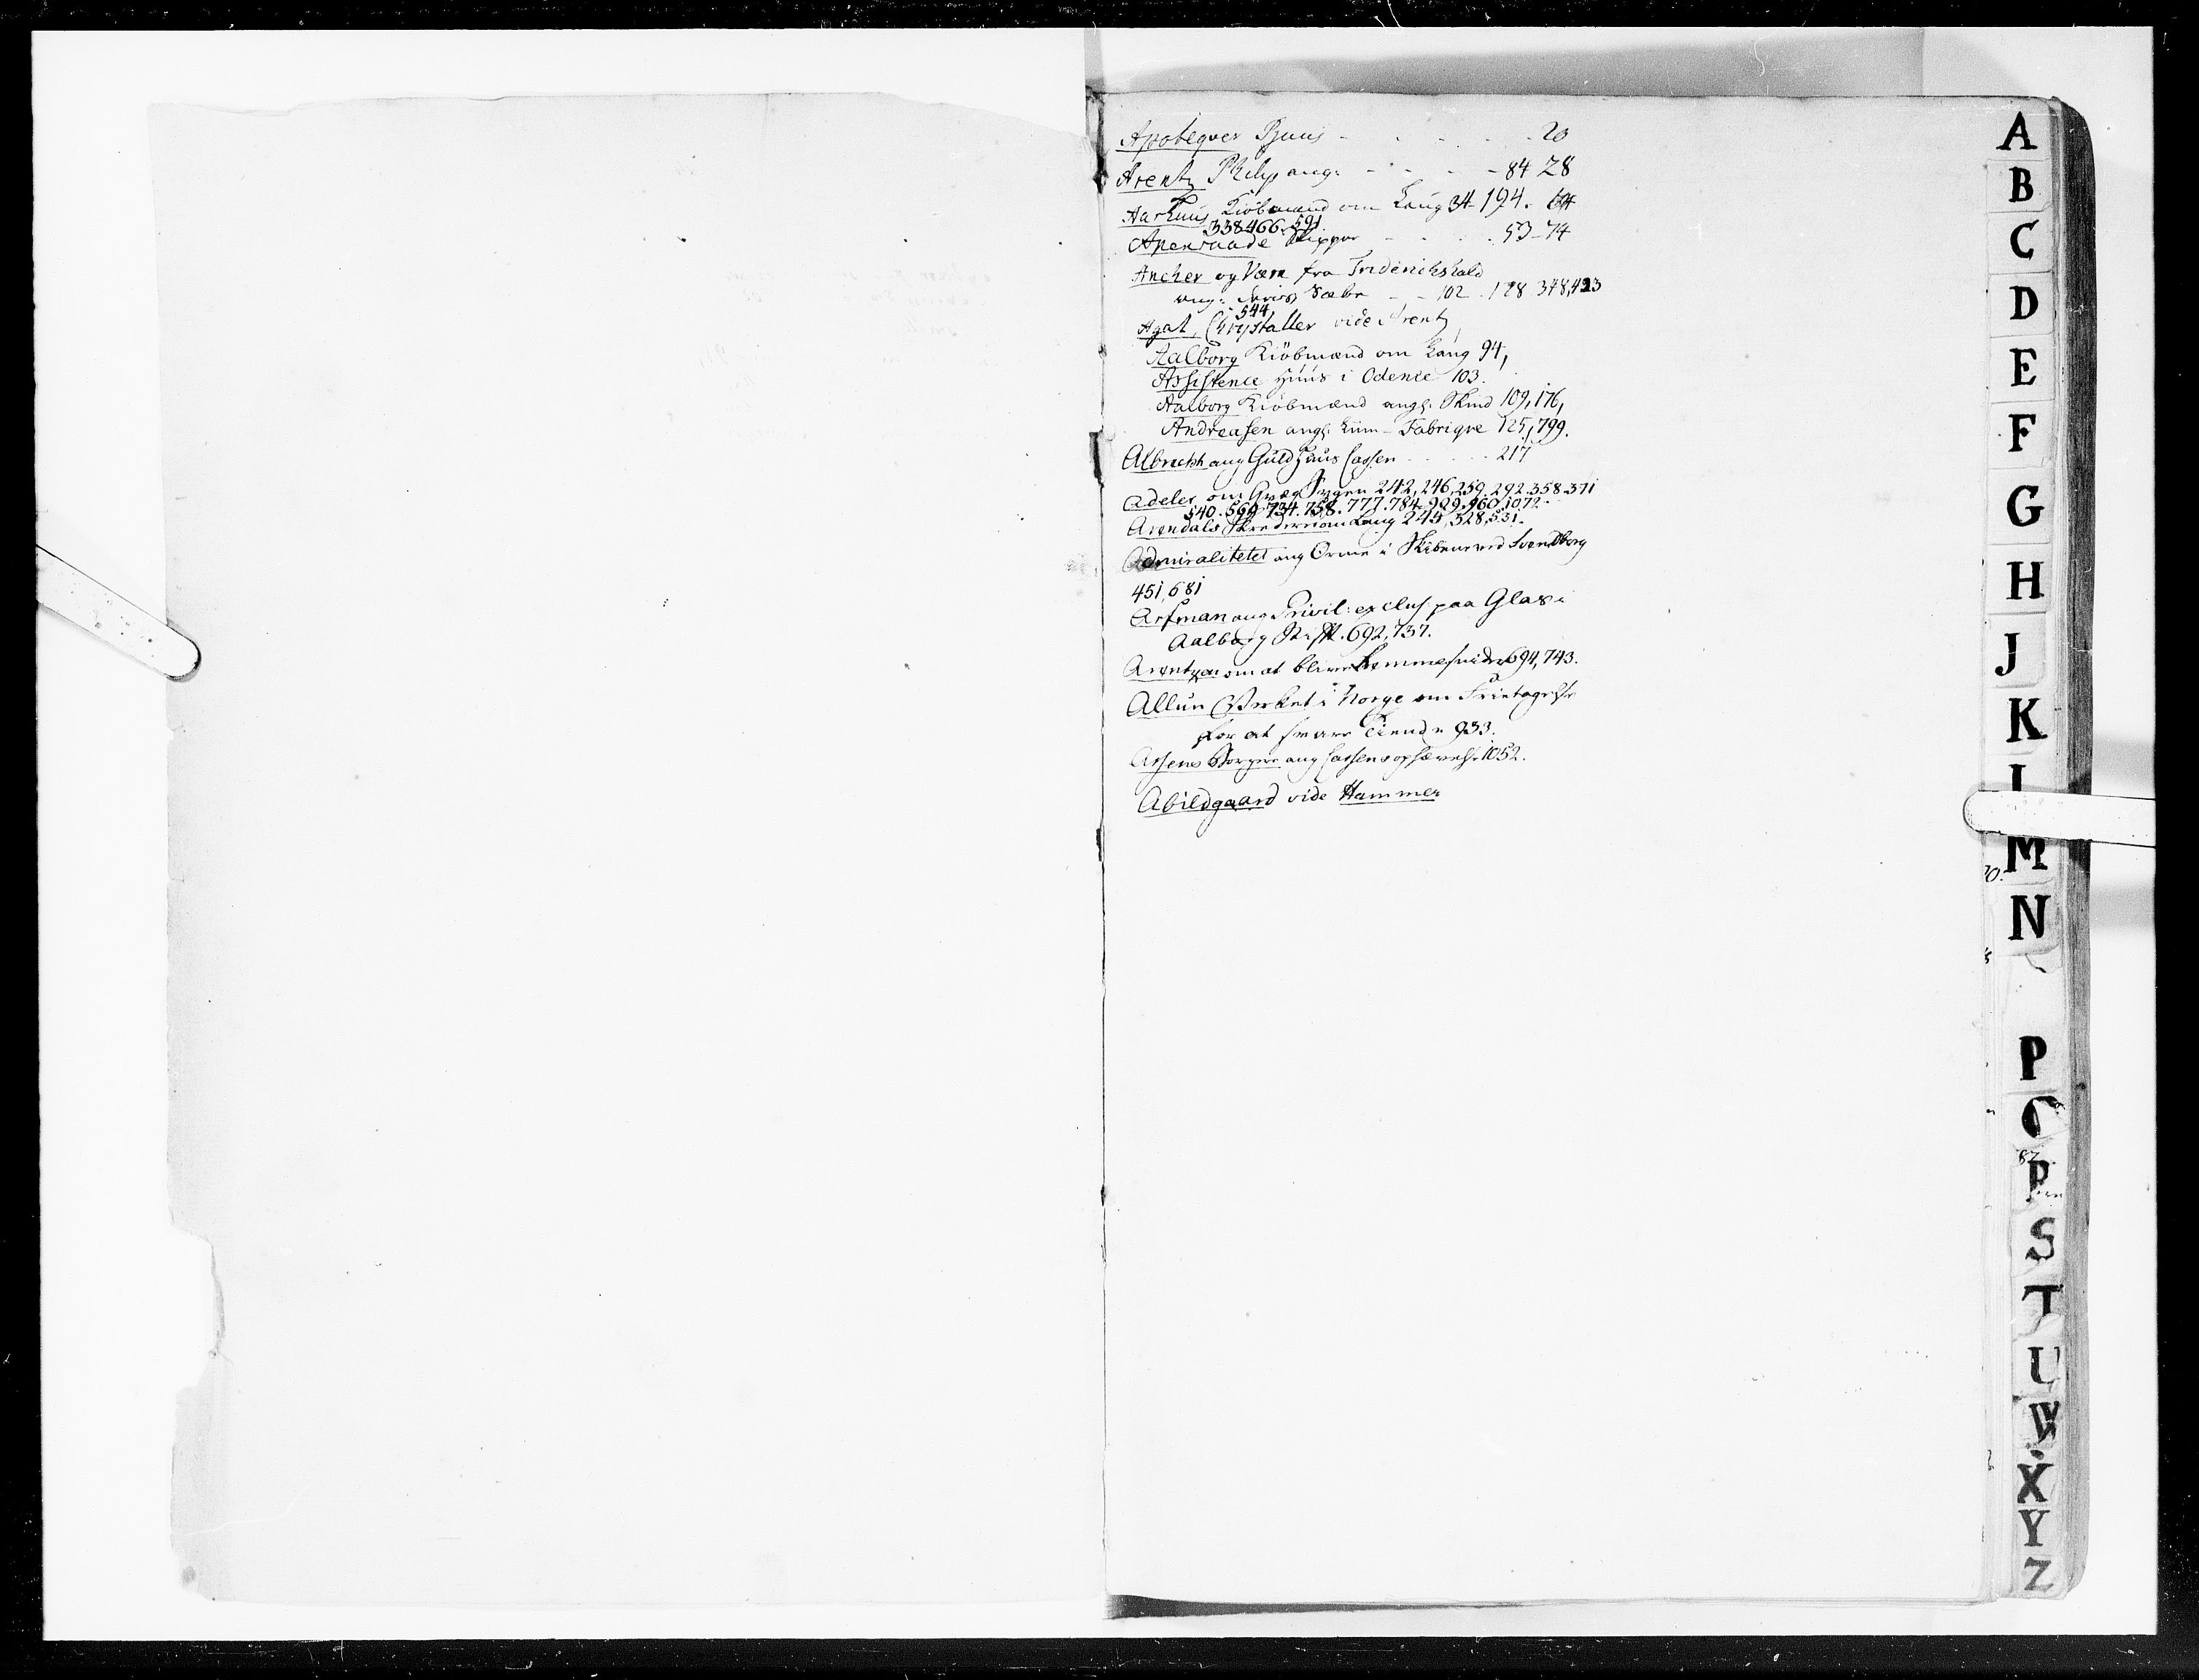 Apoteqver Buus - - - - 20
Arentz Philip ang: - - - - 84 28
Aarhuus Kiöbmænd om Laug 34 194. 64
338 466. 591
Apenraade Skipper - - - 53-74
Ancher og Værn fra Friderichshald
ang: Sæbe - - 102. 128 348, 423
544,
Agat, Chrystaller vide Arentz
Aalborg Kiöbmænd om Laug 94,
Assistence Huus i Odense 103.
Aalborg Kiöbmænd angl: Skind 109, 176,
Andreasen angl: Liim-Fabriqve 125, 799.
Albrecht ang Guldhaus Cassen - - - 217
Adeler om Qvæg Svgen 242, 246, 259. 292. 358. 371
540. 569 734. 758. 777. 784. 929. 960. 1072.
Arendals Skræderne om Laug 245, 528, 531.
Admiralitetet ang Orme i Skibene ved Svendborg
451, 681
Asfman ang Privil: exclus: paa Glas i
Aalborg Stift. 692, 737.
Arentzen om at blive 694, 743.
Allun Værket i Norge om Fritagelse
for at svare Tiende 933.
Assens Borgere ang Cassens ophævelse 1052.
Abildgaard vide Hammer
A
B
C
D
E
F
G
H
J
K
L
M
N
P
Q
R
S
T
U
W
X
Y
Z